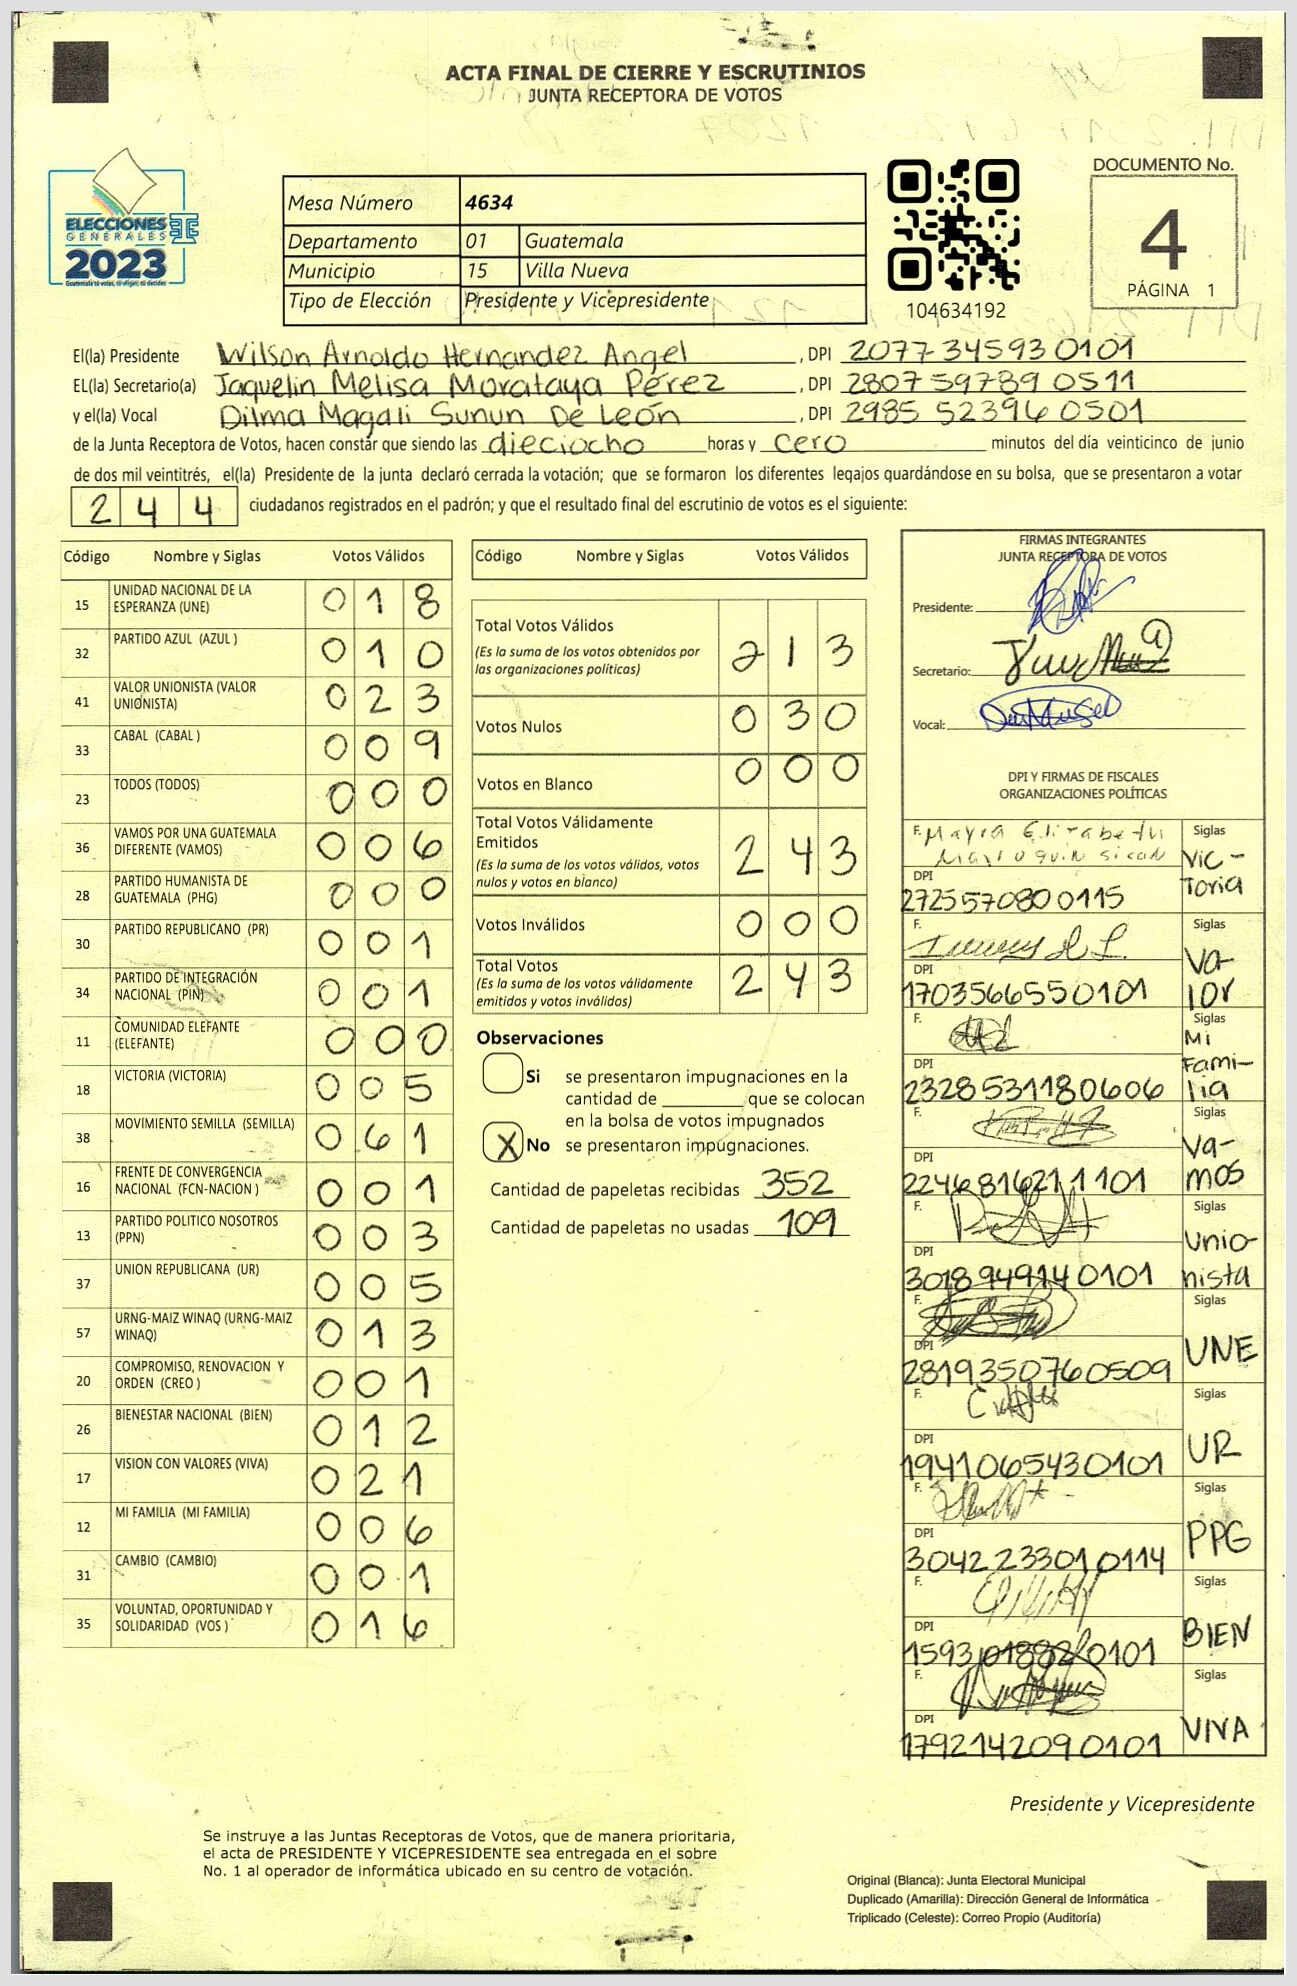 ACTA FINAL DE CIERRE Y ESCRUTINIOS
JUNTA RECEPTORA DE VOTOS
ELECCIONES
GENERALES
2023
Guatemala tú votas, tú eliges, tú decides
Mesa Número 4634
Departamento 01 Guatemala
Municipio 15 Villa Nueva
Tipo de Elección Presidente y Vicepresidente
104634192
DOCUMENTO No.
4
PÁGINA 1
El(la) Presidente Wilson Arnoldo Hernandez Angel, DPI 2077 34593 0101
EL(la) Secretario(a) Jaquelin Melisa Morataya Pérez, DPI 2807 59789 0511
y el(la) Vocal Dilma Magali Sunun De León, DPI 2985 52396 0501
de la Junta Receptora de Votos, hacen constar que siendo las dieciocho horas y cero minutos del día veinticinco de junio
de dos mil veintitrés, el(la) Presidente de la junta declaró cerrada la votación; que se formaron los diferentes legajos quardándose en su bolsa, que se presentaron a votar
244 ciudadanos registrados en el padrón; y que el resultado final del escrutinio de votos es el siguiente:
Código Nombre y Siglas Votos Válidos
15 UNIDAD NACIONAL DE LA ESPERANZA (UNE) 018
32 PARTIDO AZUL (AZUL ) 010
41 VALOR UNIONISTA (VALOR UNIONISTA) 023
33 CABAL (CABAL ) 009
23 TODOS (TODOS) 000
36 VAMOS POR UNA GUATEMALA DIFERENTE (VAMOS) 006
28 PARTIDO HUMANISTA DE GUATEMALA (PHG) 000
30 PARTIDO REPUBLICANO (PR) 001
34 PARTIDO DE INTEGRACIÓN NACIONAL (PIN) 001
11 COMUNIDAD ELEFANTE (ELEFANTE) 000
18 VICTORIA (VICTORIA) 005
38 MOVIMIENTO SEMILLA (SEMILLA) 061
16 FRENTE DE CONVERGENCIA NACIONAL (FCN-NACION ) 001
13 PARTIDO POLITICO NOSOTROS (PPN) 003
37 UNION REPUBLICANA (UR) 005
57 URNG-MAIZ WINAQ (URNG-MAIZ WINAQ) 013
20 COMPROMISO, RENOVACION Y ORDEN (CREO ) 001
26 BIENESTAR NACIONAL (BIEN) 012
17 VISION CON VALORES (VIVA) 021
12 MI FAMILIA (MI FAMILIA) 006
31 CAMBIO (CAMBIO) 001
35 VOLUNTAD, OPORTUNIDAD Y SOLIDARIDAD (VOS ) 016
Código Nombre y Siglas Votos Válidos
Total Votos Válidos 213
(Es la suma de los votos obtenidos por
las organizaciones políticas)
Votos Nulos 030
Votos en Blanco 000
Total Votos Válidamente
Emitidos 243
(Es la suma de los votos válidos, votos
nulos y votos en blanco)
Votos Inválidos 000
Total Votos 243
(Es la suma de los votos válidamente
emitidos y votos inválidos)
Observaciones
Si se presentaron impugnaciones en la
cantidad de ________ que se colocan
en la bolsa de votos impugnados
X No se presentaron impugnaciones.
Cantidad de papeletas recibidas 352
Cantidad de papeletas no usadas 109
FIRMAS INTEGRANTES
JUNTA RECEPTORA DE VOTOS
Presidente:
Secretario:
Vocal:
DPI Y FIRMAS DE FISCALES
ORGANIZACIONES POLÍTICAS
F. Mayra Elizabeth
Marroquin
Siglas Victoria
DPI 2725570800115
F. Siglas Valor
DPI 1703566550101
F. Siglas Mi Familia
DPI 2328531180606
F. Siglas Vamos
DPI 2246816211101
F. Siglas Unionista
DPI 3018949140101
F. Siglas UNE
DPI 2819350760509
F. Siglas UR
DPI 1941065430101
F. Siglas PPG
DPI 3042233010114
F. Siglas BIEN
DPI 1593018820101
F. Siglas VIVA
DPI 1792142090101
Presidente y Vicepresidente
Se instruye a las Juntas Receptoras de Votos, que de manera prioritaria,
el acta de PRESIDENTE Y VICEPRESIDENTE sea entregada en el sobre
No. 1 al operador de informática ubicado en su centro de votación.
Original (Blanca): Junta Electoral Municipal
Duplicado (Amarilla): Dirección General de Informática
Triplicado (Celeste): Correo Propio (Auditoría)